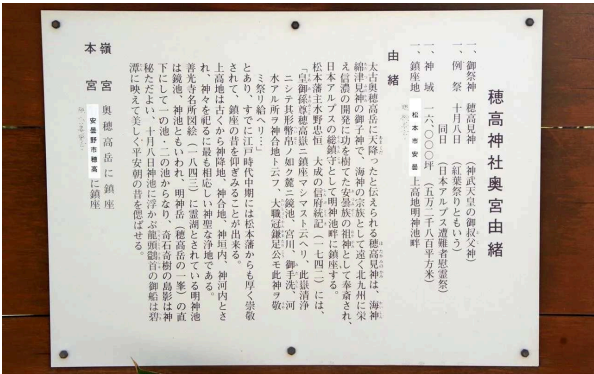 穂高神社奥宮由緒
一、御祭神 穂高見神 (神武天皇の御叔父神)
一、例祭 十月八日 (紅葉祭りともいう)
同日 (日本アルプス遭難者慰霊祭)
一、神域 一六〇〇〇坪 (五万二千八百平方米)
一、鎮座地 松本市安曇 上高地明神池畔
由緒
太古奥穂高岳に天降ったと伝えられる穂高見神は、海神
綿津見神の御子神で、海神の宗族として遠く北九州に栄
え信濃の開発に功を樹てた安曇族の祖神として奉斎され、
日本アルプスの総鎮守として明神池畔に鎮座する。
松本藩主水野忠恒 大成の信府統記(一七四二)には、
「皇御孫尊穂高嶽ニ鎮座マシマスト云ヘリ、此嶽清浄
ニシテ其形幣帛ノ如ク麓ニ鏡池、宮川、御手洗、河
水アル所ヲ神合地ト云フ、大職冠鎌足公モ此神ヲ敬
ミ祭リ給ヘリ…」
とあり、すでに江戸時代中期には松本藩からも厚く崇敬
されて、鎮座の昔を仰ぎみることが出来る。
上高地は古くから神降地、神合地、神垣内、神河内とさ
れ、神々を祀るに最も相応しい神聖な浄地である。
善光寺名所図絵(一八四三)に霊湖とされている明神池
は鏡池、神池ともいわれ、明神岳(穂高岳の一峯)の直
下にして一の池・二の池からなり、奇石奇樹の島影は神
秘ただよい、十月八日神池に浮かぶ龍頭鷁首の御船は碧
潭に映えて美しく平安朝の昔を偲ばせる。
嶺宮 奥穂高岳に鎮座
本宮 安曇野市穂高 に鎮座